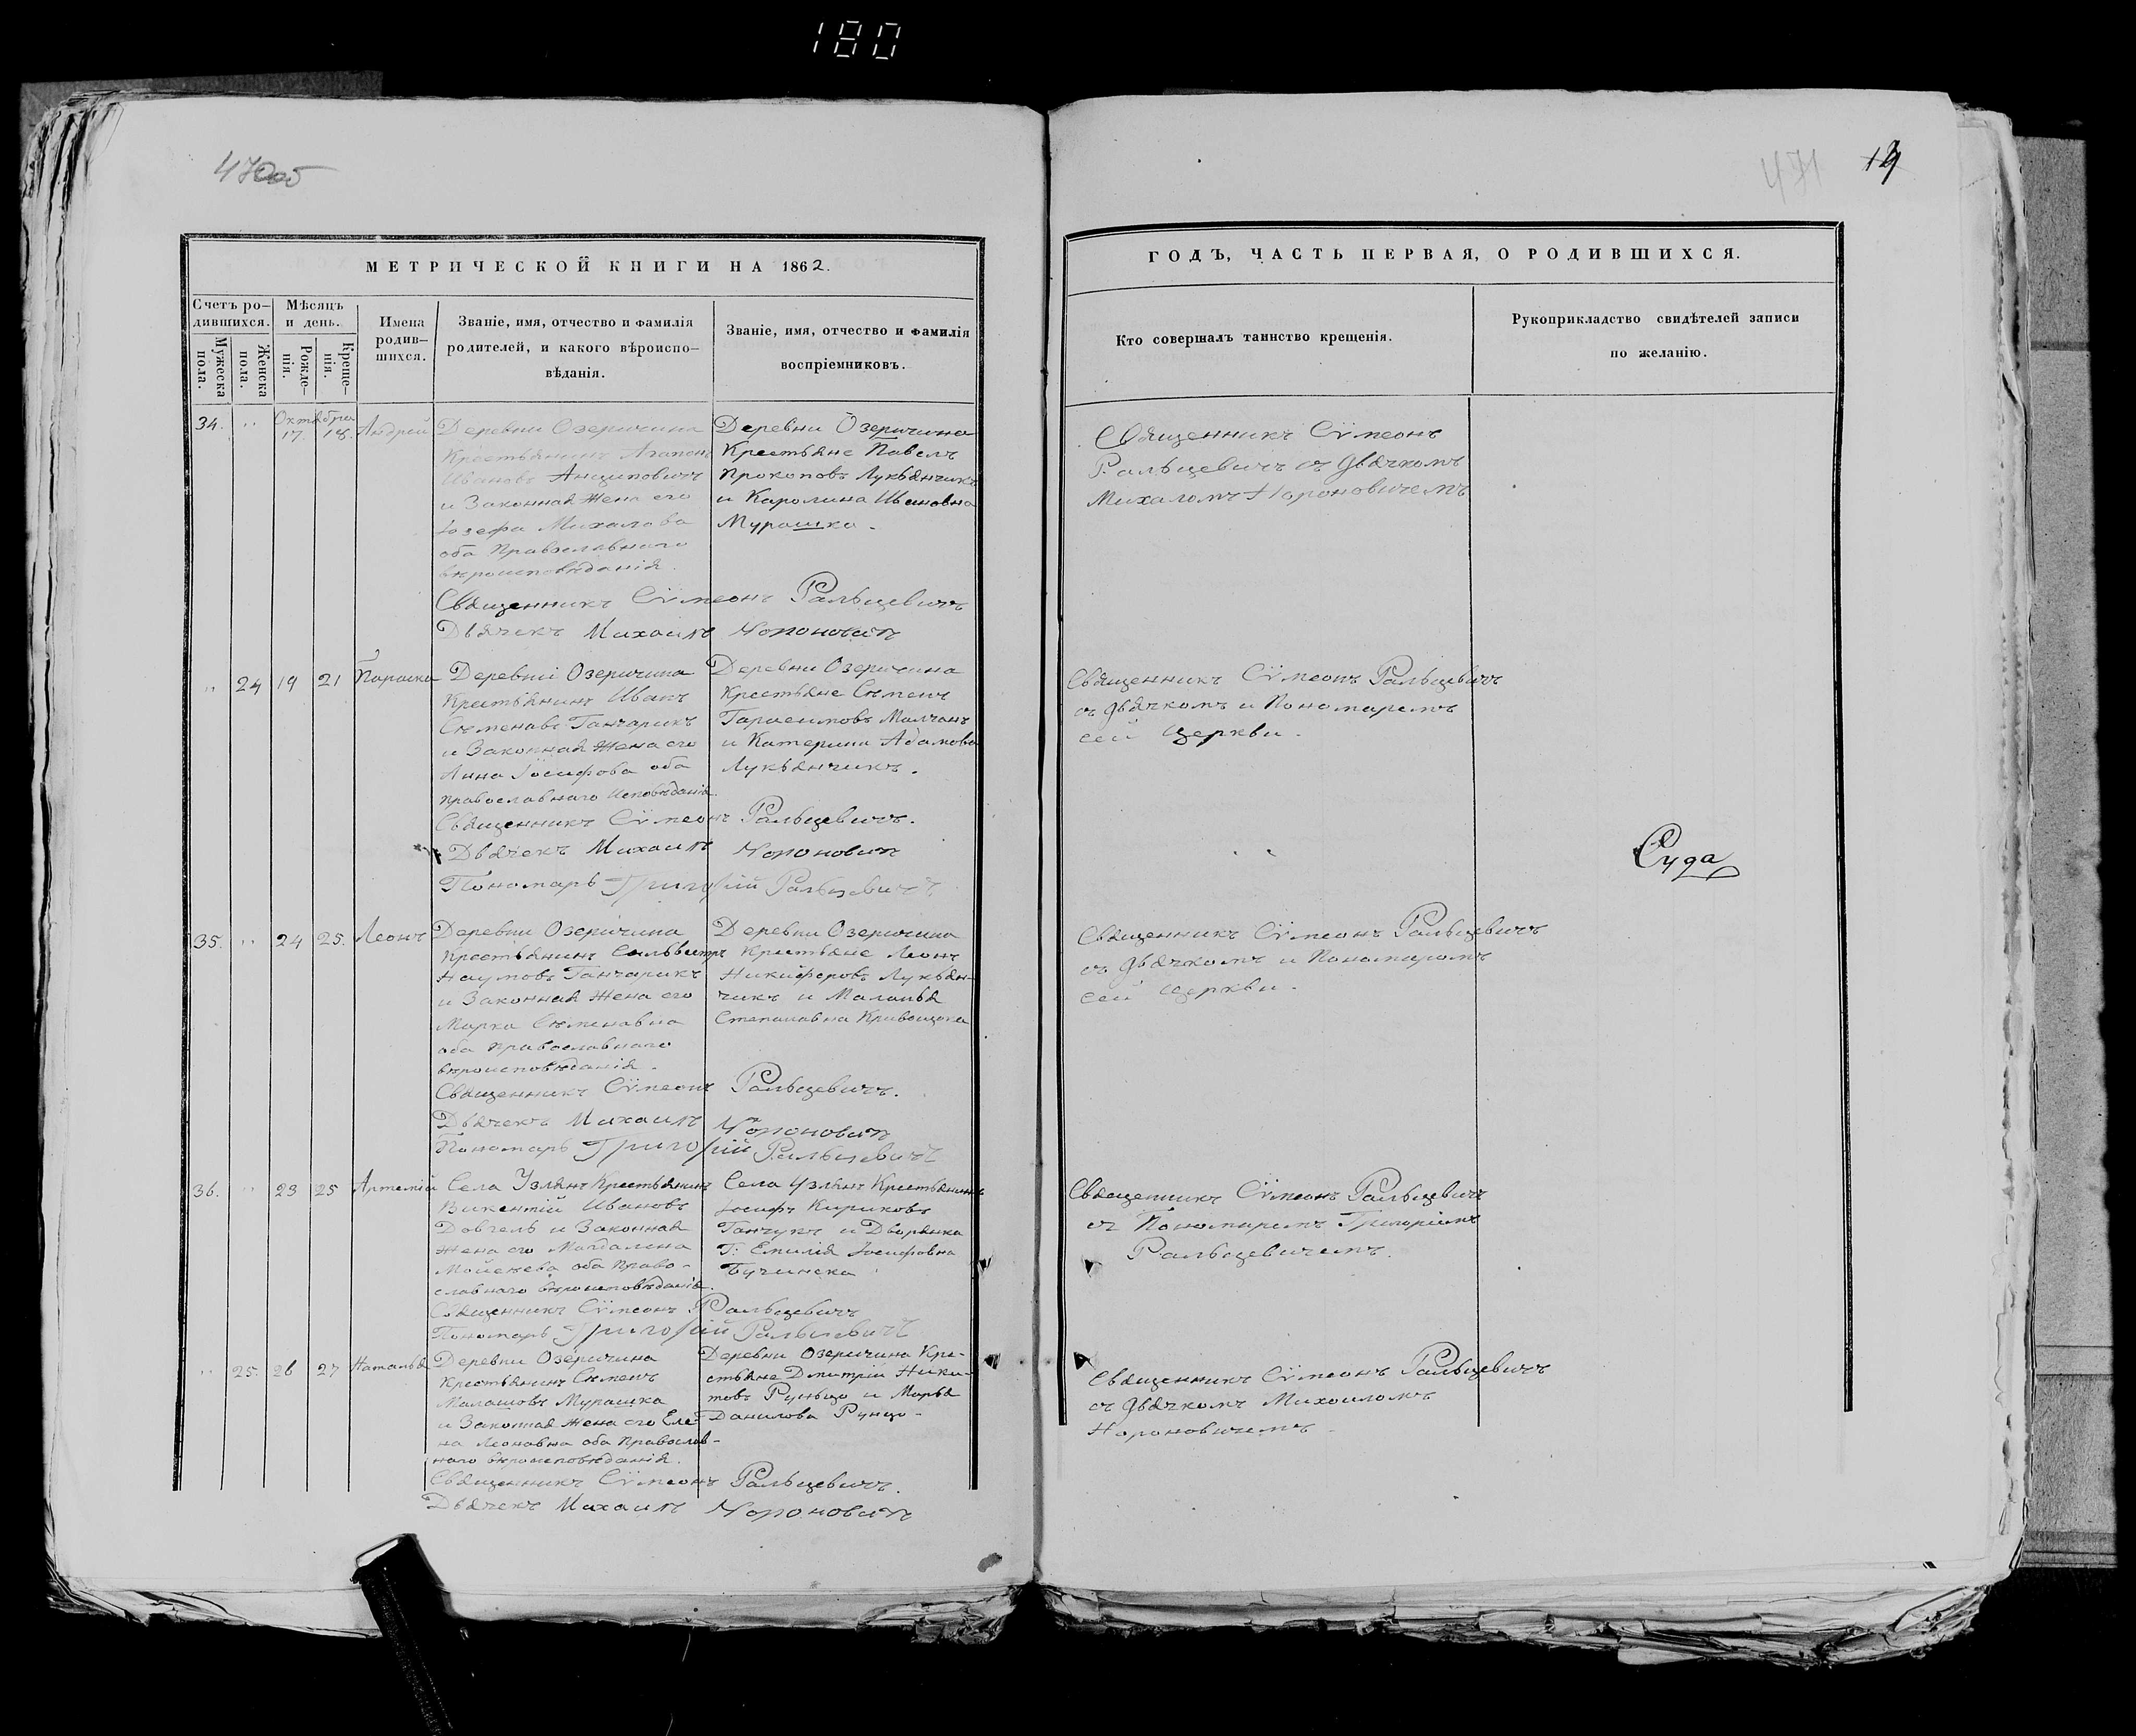 180
470об
471
14
МЕТРИЧЕСКОЙ КНИГИ НА 1862.
Счетъ родившихся.
Мѣсяцъ и день.
Имена родившихся.
Званіе, имя, отчество и фамилія
родителей, и какого вѣроиспо-
вѣданія.
Званіе, имя, отчество и фамилія
воспріемниковъ.
Мужеска пола.
Женска пола.
Рожденія.
Крещенія.
34. " Октября 17. 18. Андрей
Деревни Озеричина
Крестьянинъ Агапонъ
Ивановъ Анциповичъ
и Законная Жена его
Іозефа Михалова
оба Православнаго
вѣроисповѣданія.
Деревни Озеричина
Крестьяне Павелъ
Прокоповъ Лукьянчикъ
и Каролина Ивановна
Мурашка.
Священникъ Сѵмеонъ Ральцевичъ
Дьячекъ Михаилъ Нороновичъ
" 24 19 21 Параска
Деревни Озеричина
Крестьянинъ Иванъ
Сѣменавъ Ганчарикъ
и Законная Жена его
Анна Іосифова оба
Православнаго Исповѣданія.
Деревни Озеричина
Крестьяне Сѣменъ
Гарасимовъ Малчанъ
и Катерина Адамова
Лукьянчикъ.
Священникъ Сѵмеонъ Ральцевичъ.
Дьячекъ Михаилъ Нороновичъ
Пономарь Григорій Ральцевичъ
35. " 24 25. Леонъ
Деревни Озеричина
Крестьянинъ Сильвестръ
Наумовъ Ганчарикъ
и Законная Жена его
Марка Сѣменавна
оба Православнаго
вѣроисповѣданія.
Деревни Озеричина
Крестьяне Леонъ
Никифоровъ Лукьян-
чикъ и Маланья
Степанавна Кривощока
Священникъ Сѵмеонъ Ральцевичъ.
Дьячекъ Михаилъ Нороновичъ
Пономарь Григорій Ральцевичъ
36. " 23 25 Артемій
Села Узлянъ Крестьянинъ
Викентій Ивановъ
Довгель и Законная
Жена его Магдалена
Моисеева оба Право-
славнаго вѣроисповѣданія.
Села Узлянъ Крестьянинъ
Іосифъ Кириковъ
Ганчукъ и Дворянка
Г: Емилія Іосифовна
Бучинска
Священникъ Сѵмеонъ Ральцевичъ
Пономарь Григорій Ральцевичъ
" 25. 26 27 Наталья
Деревни Озеричина
Крестьянинъ Сѣменъ
Малашовъ Мурашка
и Законная Жена его Еле-
на Леоновна оба Православ-
наго вѣроисповѣданія.
Деревни Озеричина Кре-
стьяне Дмитрій Ники-
товъ Рунцо и Марья
Данилова Рунцо.
Священникъ Сѵмеонъ Ральцевичъ.
Дьячекъ Михаилъ Нороновичъ
ГОДЪ, ЧАСТЬ ПЕРВАЯ, О РОДИВШИХСЯ.
Кто совершалъ таинство крещенія.
Рукоприкладство свидѣтелей записи
по желанію.
Священникъ Сѵмеонъ
Ральцевичъ съ Дьячкомъ
Михаломъ Нороновичемъ
Священникъ Сѵмеонъ Ральцевичъ
съ Дьячкомъ и Пономаремъ
сей Церкви.
Суда
Священникъ Сѵмеонъ Ральцевичъ
съ Дьячкомъ и Пономаромъ
сей Церкви.
Священникъ Сѵмеонъ Ральцевичъ
съ Пономаремъ Григоріемъ
Ральцевичемъ.
Священникъ Сѵмеонъ Ральцевичъ
съ Дьячкомъ Михоиломъ
Нороновичемъ.